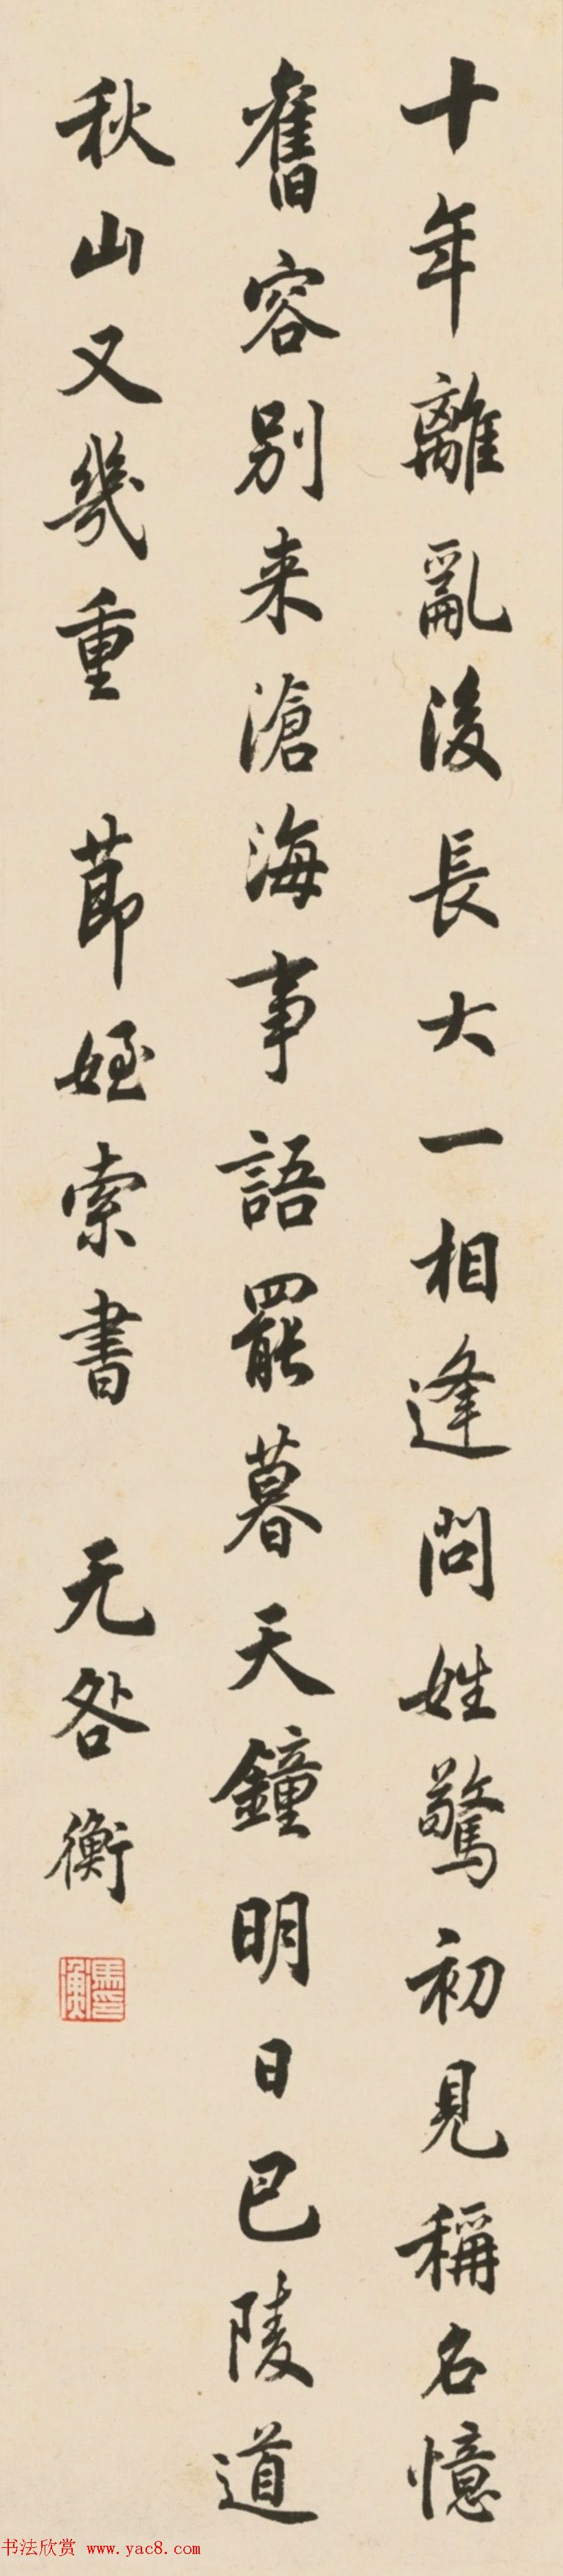 十年離亂後長大一相逢問姓驚初見稱名憶
舊容別来滄海事語罷暮天鐘明日巴陵道
秋山又幾重 節姪索書 无咎衡
馬衡印
书法欣赏 www.yac8.com